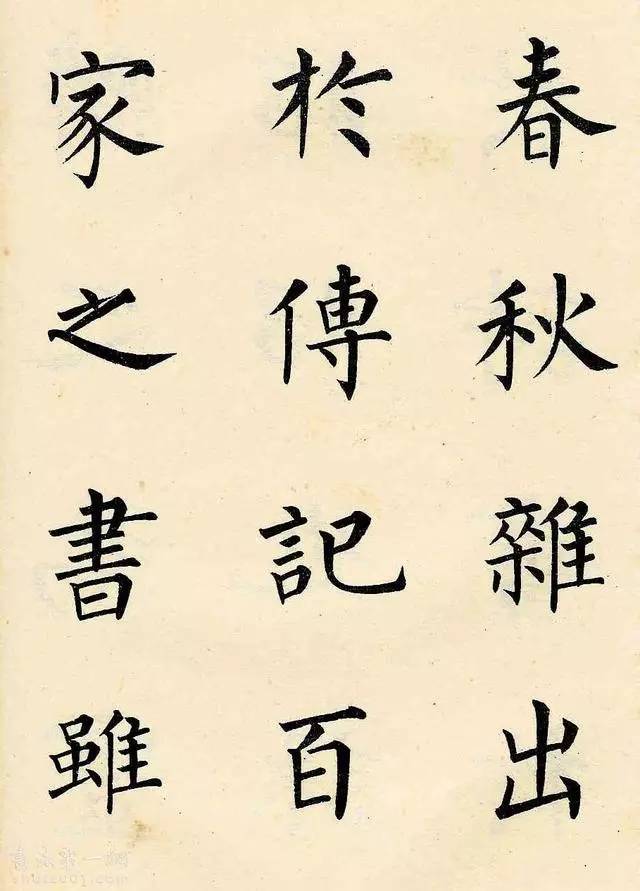 春秋雜出
於傳記百
家之書雖